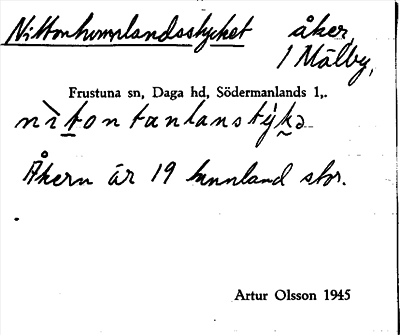 Nittontunnlandsstycket åker,
1 Mälby,
Frustuna sn, Daga hd, Södermanlands l,.
nìtontanlanstýkə
Åkern är 19 tunnland stor.
Artur Olsson 1945